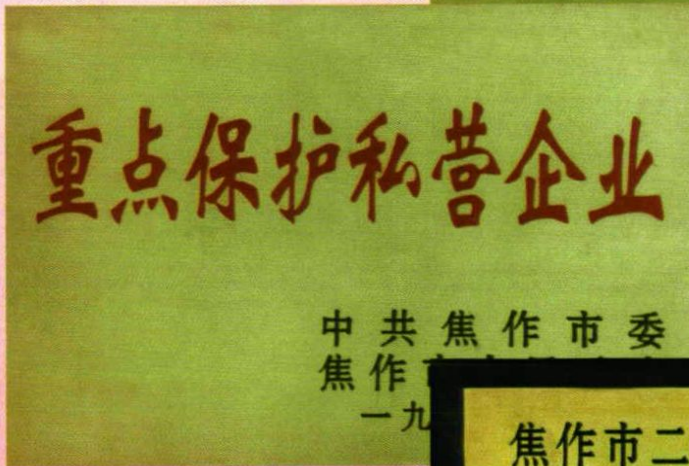 重点保护私营企业
中共焦作市委
焦作
一九
焦作市二